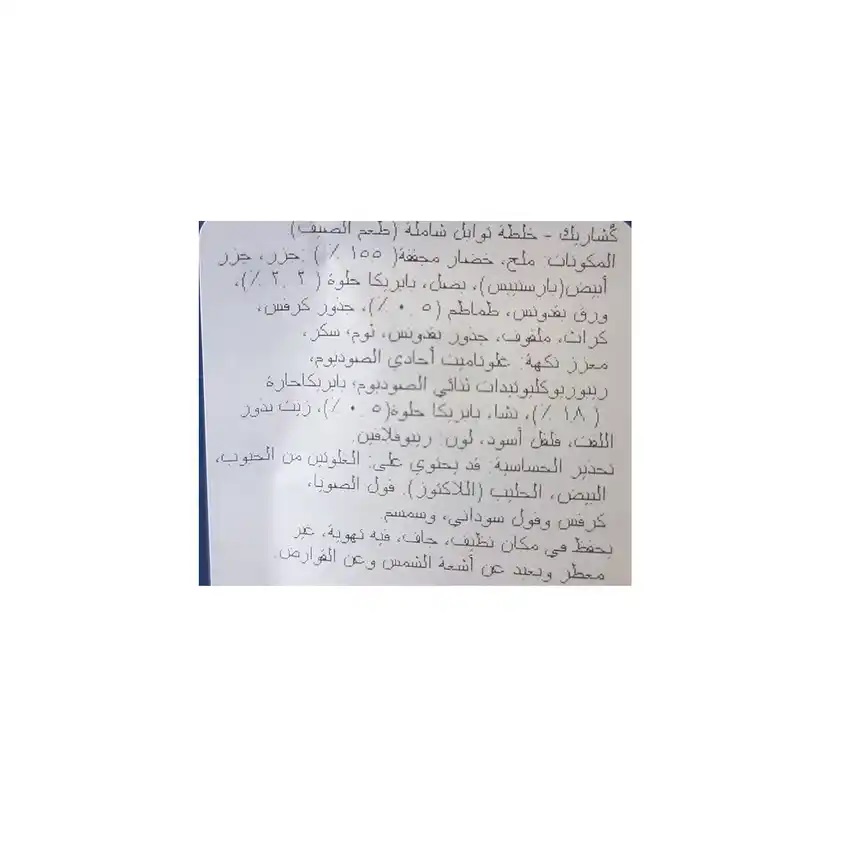 كُشاريك - خلطة توابل شاملة (طعم الصيف)
المكونات: ملح، خضار مجففة( ١٥٥ ٪ ) :جزر، جزر
أبيض(بارسنيبس)، بصل، بابريكا حلوة ( ٢ . ٢ ٪)،
ورق بقدونس، طماطم (٥ . ٠ ٪)، جذور كرفس،
كراث، ملفوف، جذور بقدونس، ثوم، سكر،
معزز نكهة: غلوتاميت أحادي الصوديوم،
ريبوريوكليوتيدات ثنائي الصوديوم، بابريكاحارة
( ١٨ ٪)، نشا، بابريكا حلوة(٥ . ٠ ٪)، زيت بذور
اللفت، فلفل أسود، لون: ريبوفلافين.
تحذير الحساسية: قد يحتوي على: الغلوتين من الحبوب،
البيض، الحليب (اللاكتوز). فول الصويا،
كرفس وفول سوداني، وسمسم.
يحفظ في مكان نظيف، جاف، فيه تهوية، غير
معطر وبعيد عن أشعة الشمس وعن القوارض.